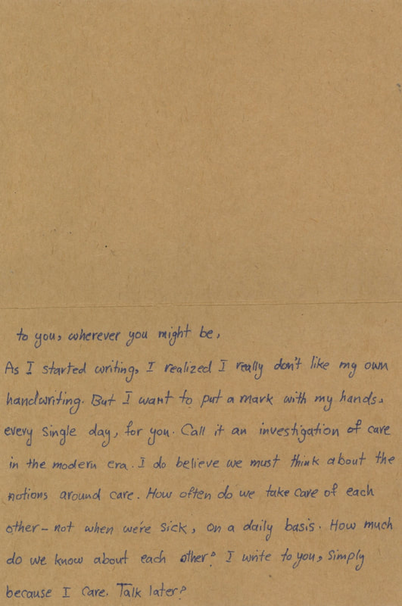 to you, wherever you might be,
As I started writing, I realized I really don't like my own
handwriting. But I want to put a mark with my hands,
every single day, for you. Call it an investigation of care
in the modern era. I do believe we must think about the
notions around care. How often do we take care of each
other - not when we're sick, on a daily basis. How much
do we know about each other? I write to you, simply
because I care. Talk later?